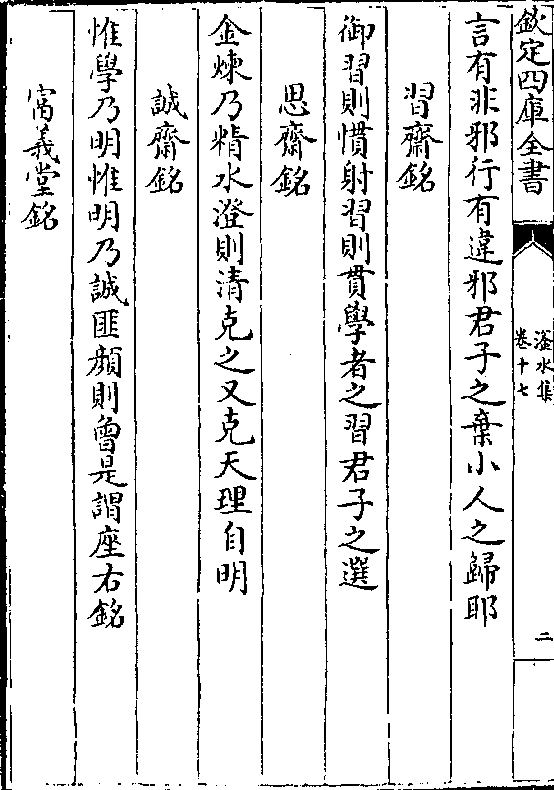 欽定四庫全書
滏水集
卷十七
二
言有非邪行有違邪君子之棄小人之歸耶
習齋銘
御習則慣射習則貫學者之習君子之選
思齋銘
金煉乃精水澄則清克之又克天理自明
誠齋銘
惟學乃明惟明乃誠匪顏則曾是謂座右銘
富義堂銘